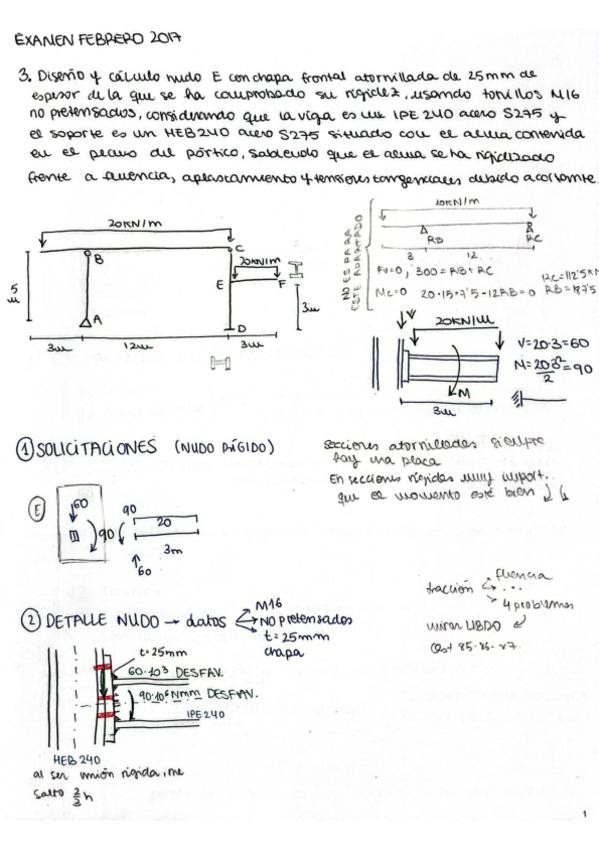 EXAMEN FEBRERO 2017
3. Diseño y cálculo nudo E con chapa frontal atornillada de 25mm de
espesor de la que se ha comprobado su rigidez, usando tornillos M16
no pretensados, considerando que la viga es un IPE 240 acero S275 y
el soporte es un HEB240 acero S275 situado con el alma contenida
en el plano del pórtico, sabiendo que el alma se ha rigidizado
frente a fluencia, aplastamiento y tensiones tangenciales debido a cortante.
20KN/m
B
C
20KN/m
E
F
5
m
A
D
3m
3m
12m
3m
NO ES PARA
ESTE APARTADO
20KN/m
RB
RC
3
12
Fv=0, 300=RB+RC
Mc=0 20·15·7'5-12RB=0
RC=112'5KN
RB=187'5
20KN/m
M
3m
V=20·3=60
M=20·3²/2=90
① SOLICITACIONES (NUDO RÍGIDO)
secciones atornilladas siempre
hay una placa
En secciones rígidas muy import.
que el momento esté bien
E
60
90
90
20
3m
60
tracción
fluencia
...
4 problemas
mirar LIBRO
② DETALLE NUDO → datos
M16
NO pretensados
t=25mm
chapa
t=25mm
60·10³ DESFAV.
90·10⁶ Nmm DESFAV.
IPE240
HEB 240
al ser unión rígida, me
salto 2/3 h
1